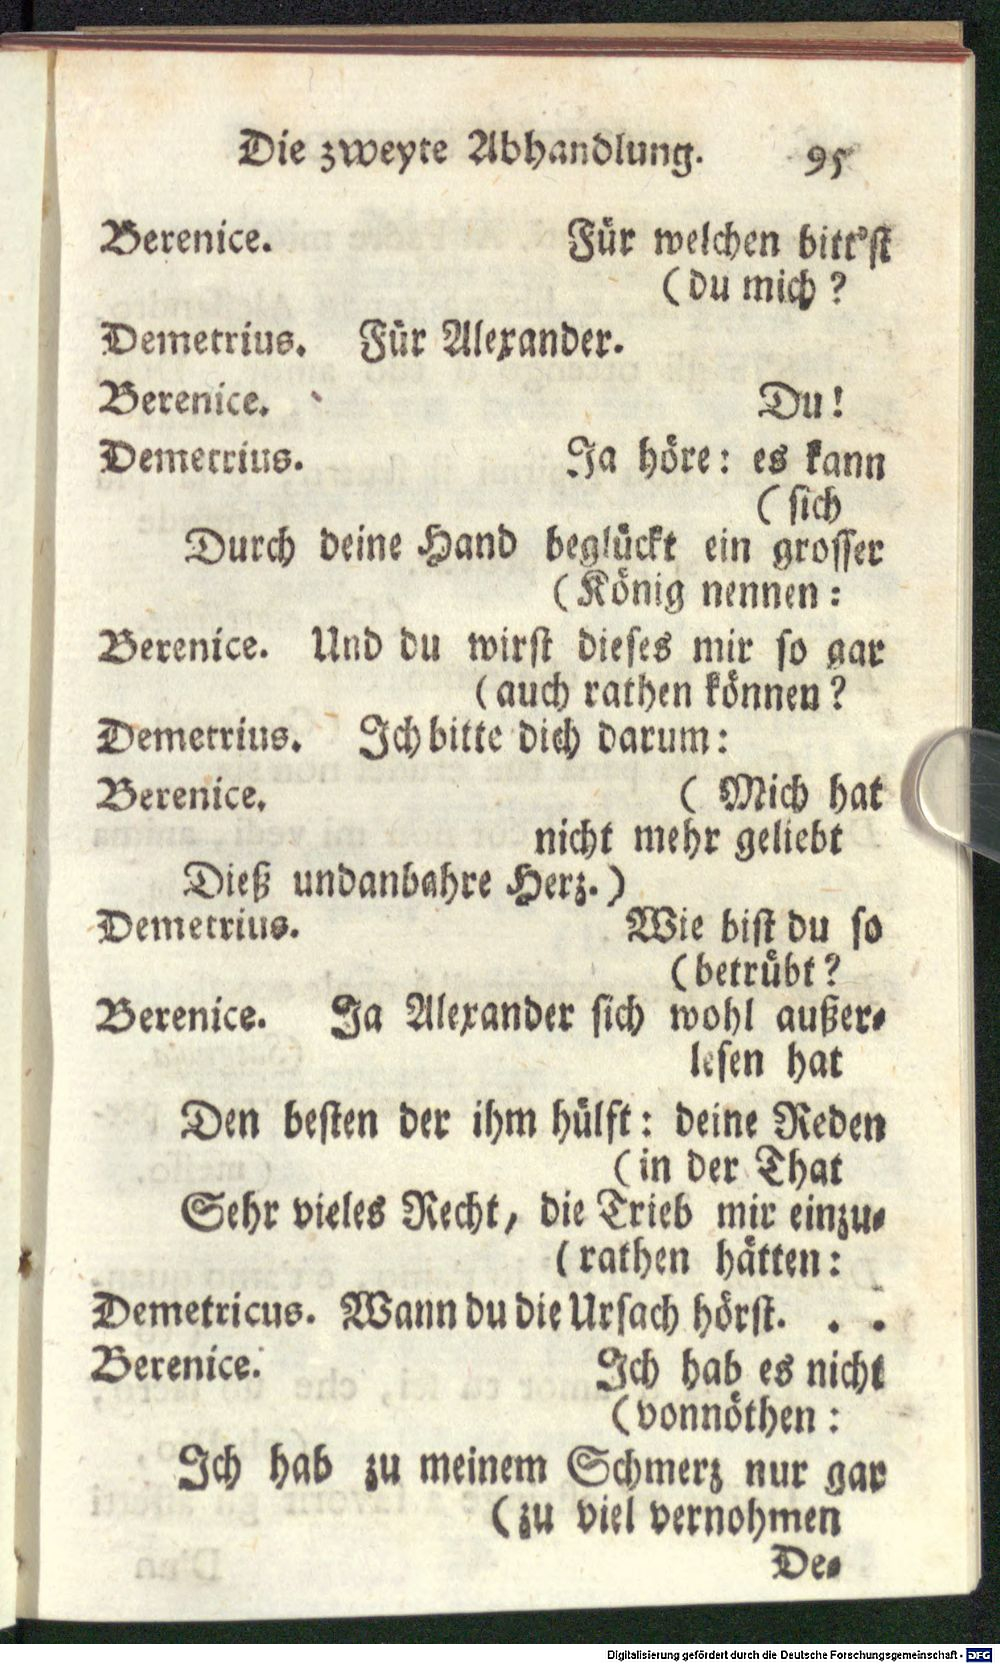 Die zweyte Abhandlung. 95
Berenice. Für welchen bitt'st
(du mich?
Demetrius. Für Alexander.
Berenice. Du!
Demetrius. Ja höre: es kann
(sich
Durch deine Hand beglückt ein grosser
(König nennen:
Berenice. Und du wirst dieses mir so gar
(auch rathen können?
Demetrius. Ich bitte dich darum:
Berenice. (Mich hat
nicht mehr geliebt
Dieß undanbahre Herz.)
Demetrius. Wie bist du so
(betrübt?
Berenice. Ja Alexander sich wohl außer-
lesen hat
Den besten der ihm hülft: deine Reden
(in der That
Sehr vieles Recht, die Trieb mir einzu-
(rathen hätten:
Demetricus. Wann du die Ursach hörst. . .
Berenice. Ich hab es nicht
(vonnöthen:
Ich hab zu meinem Schmerz nur gar
(zu viel vernohmen
De-
Digitalisierung gefördert durch die Deutsche Forschungsgemeinschaft - DFG